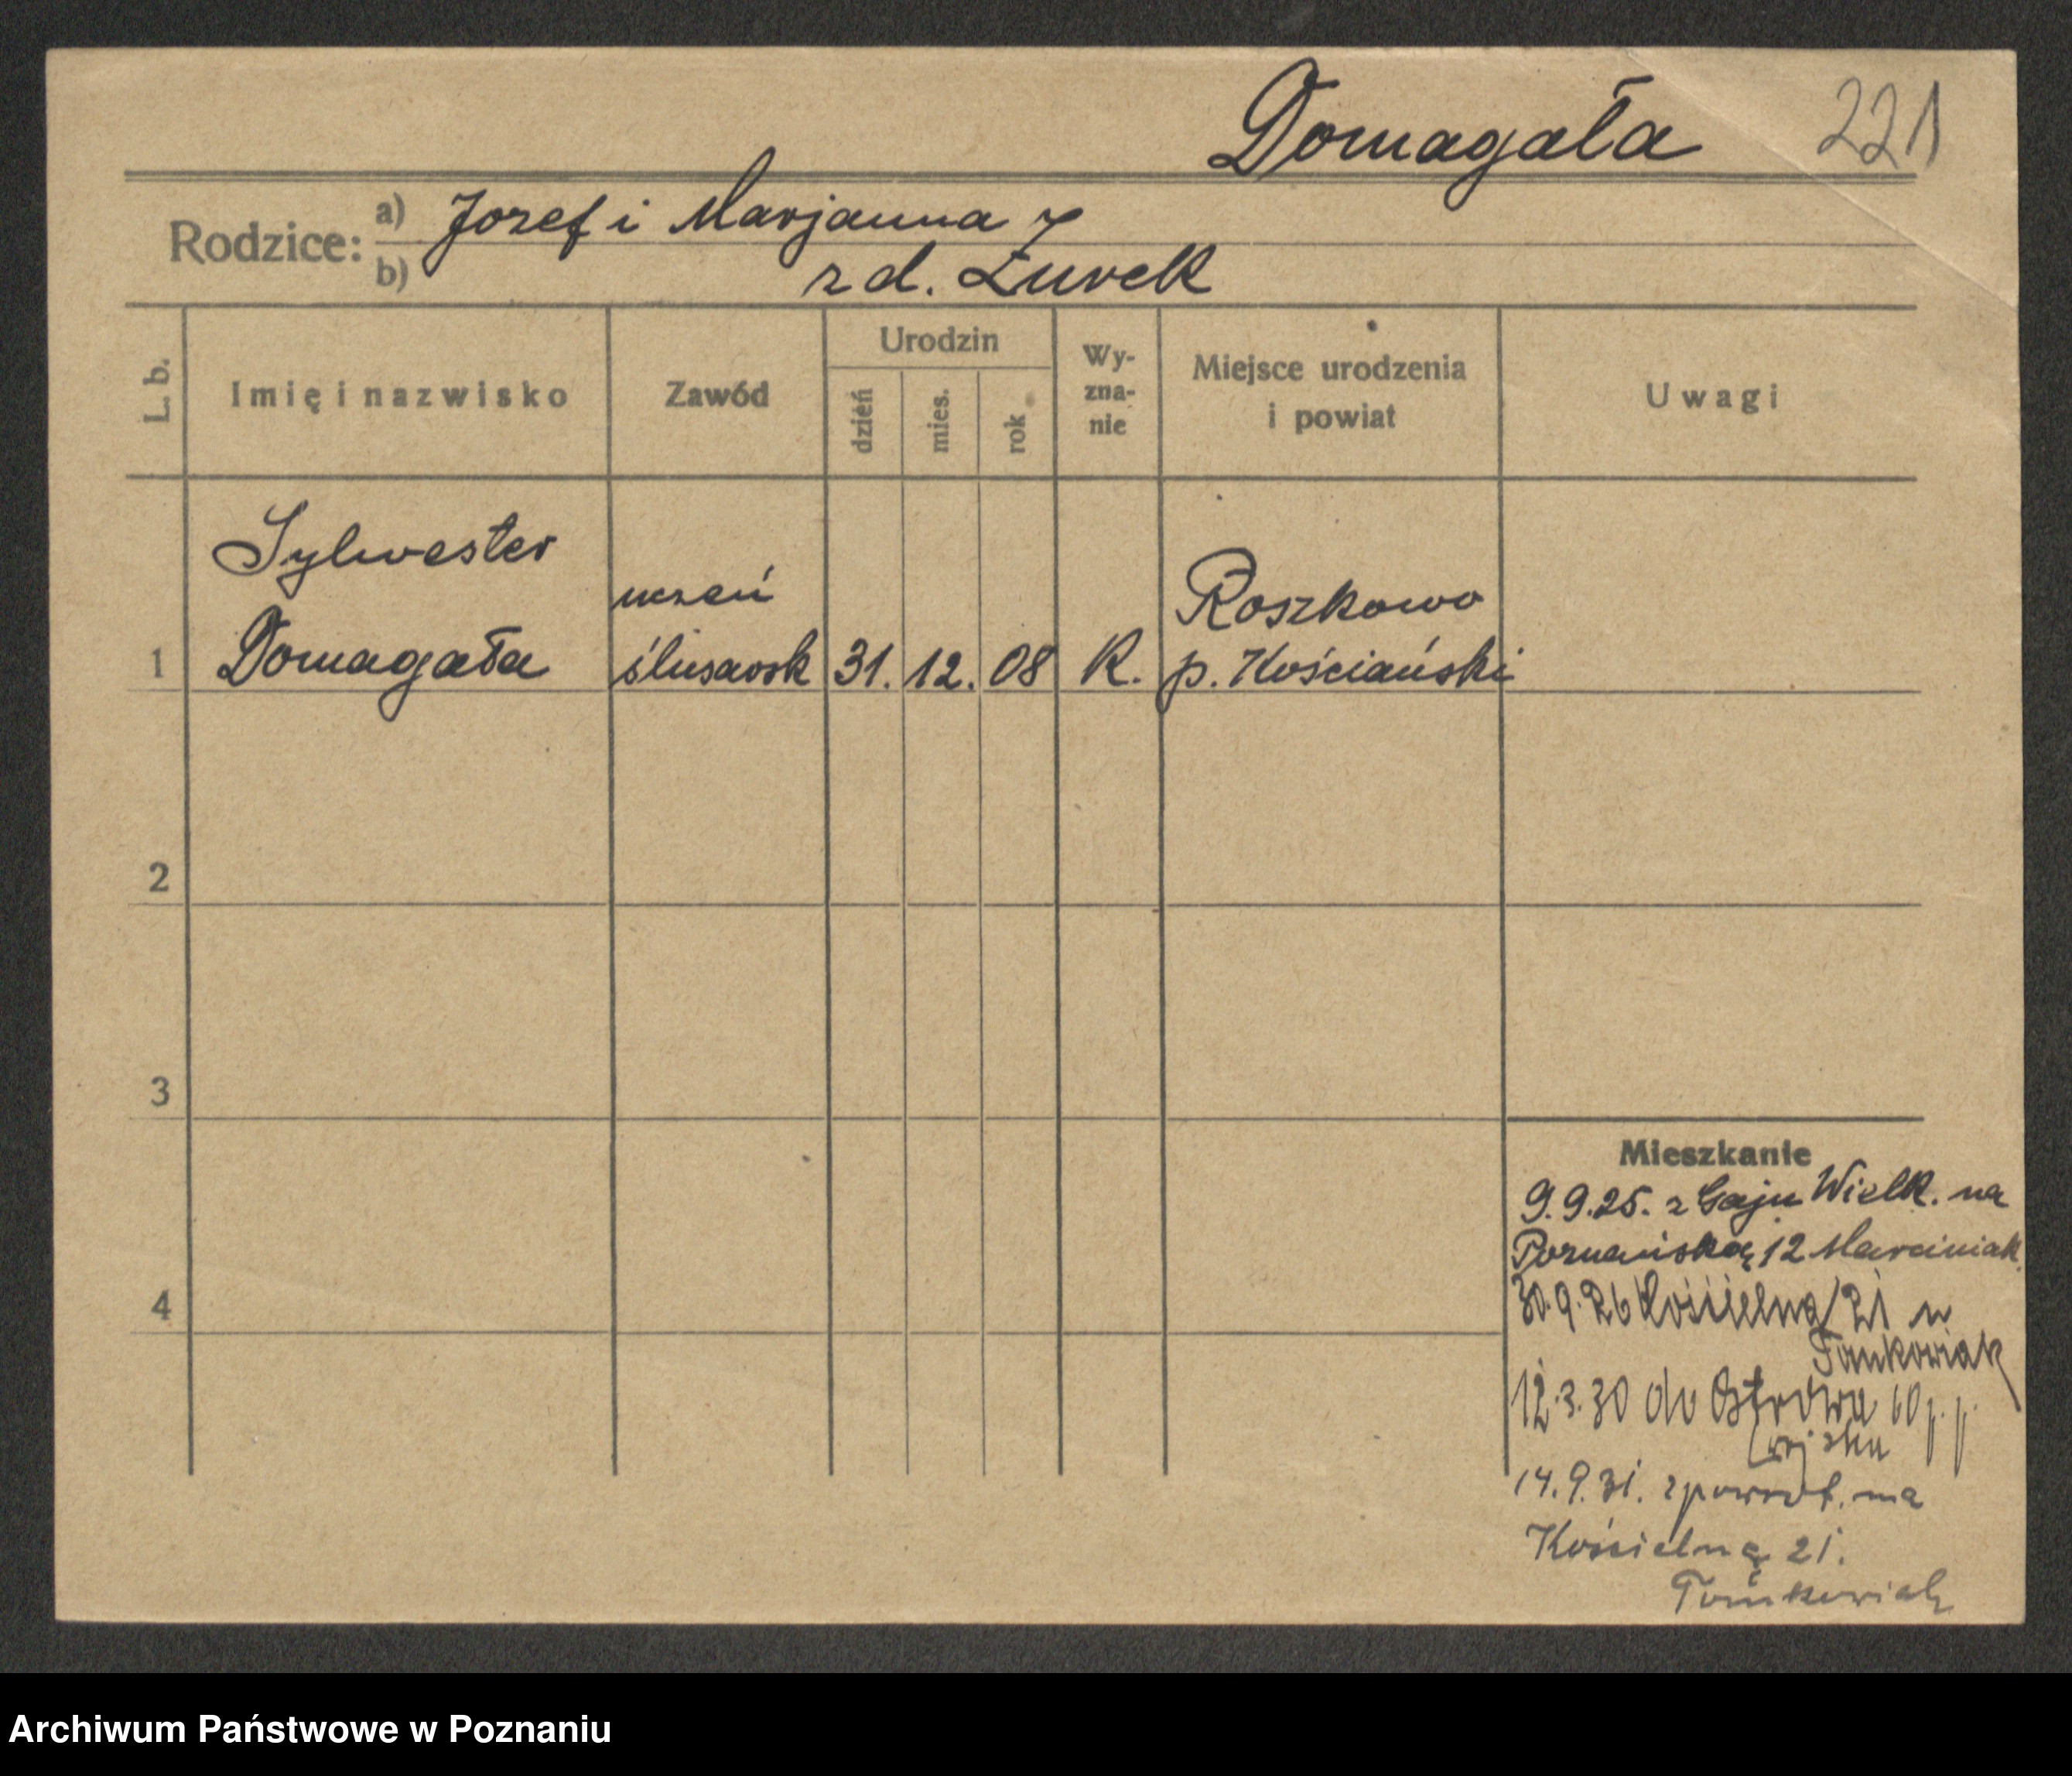 Domagała 221
Rodzice: a) Jozef i Marjanna z
b) z d. Żurek
L. b. Imię i nazwisko Zawód Urodzin dzień mies. rok Wy-zna-nie Miejsce urodzenia i powiat Uwagi
Sylwester
uczeń Roszkowo
1 Domagała ślusarsk 31. 12. 08 K. p. Kościański
2
3
Mieszkanie
9.9.25. z Gaju Wielk. na
Poznańską 12 Marciniak
4 30.9.26 Kościelna 21 u
Tomkowiak
12.3.30 do Ostrowa 60 p.p.
wojska
14.9.31. zpowrot. na
Kościelną 21.
Tomkowiak
Archiwum Państwowe w Poznaniu